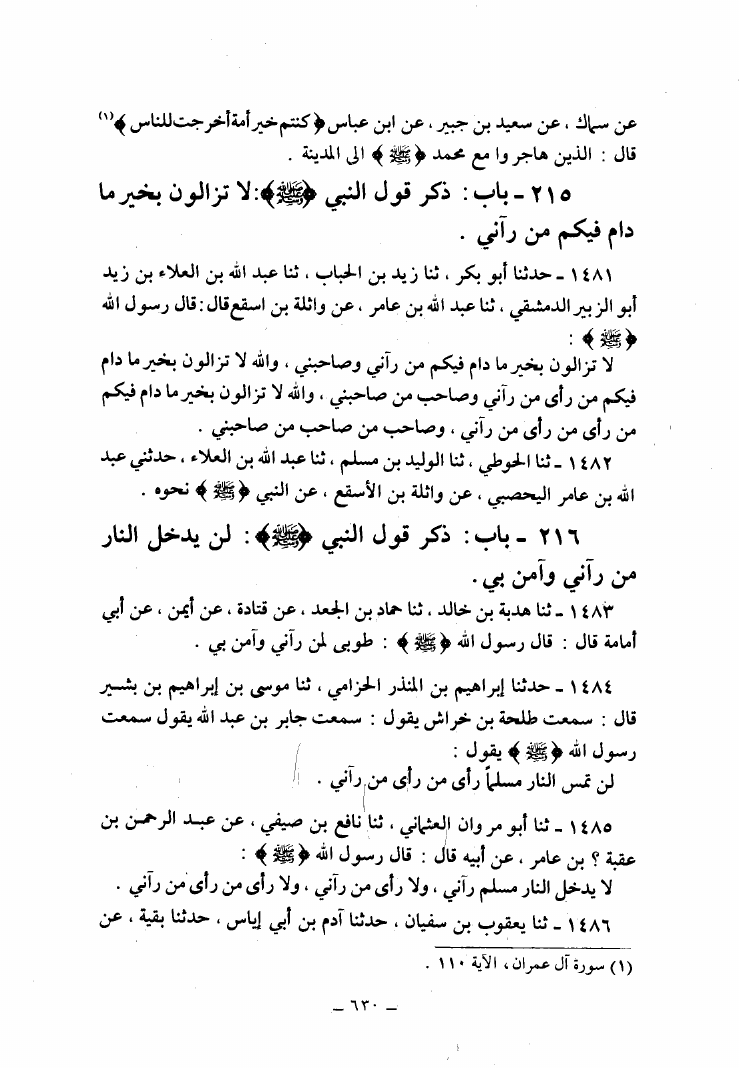 عن سماك ، عن سعيد بن جبير ، عن ابن عباس ﴿ كنتم خير أمة أخرجت للناس ﴾(١)
قال : الذين هاجروا مع محمد ﴿ ﷺ ﴾ الى المدينة .
٢١٥ - باب : ذكر قول النبي ﴿ﷺ﴾: لا تزالون بخير ما
دام فيكم من رآني .
١٤٨١ - حدثنا أبو بكر ، ثنا زيد بن الحباب ، ثنا عبد الله بن العلاء بن زيد
أبو الزبير الدمشقي ، ثنا عبد الله بن عامر ، عن واثلة بن اسقع قال : قال رسول الله
﴿ ﷺ ﴾ :
لا تزالون بخير ما دام فيكم من رآني وصاحبني ، والله لا تزالون بخير ما دام
فيكم من رأى من رآني وصاحب من صاحبني ، والله لا تزالون بخير ما دام فيكم
من رأى من رأى من رآني ، وصاحب من صاحب من صاحبني .
١٤٨٢ - ثنا الحوطي ، ثنا الوليد بن مسلم ، ثنا عبد الله بن العلاء ، حدثني عبد
الله بن عامر اليحصبي ، عن واثلة بن الأسقع ، عن النبي ﴿ ﷺ ﴾ نحوه .
٢١٦ - باب : ذكر قول النبي ﴿ﷺ﴾ : لن يدخل النار
من رآني وآمن بي .
١٤٨٣ - ثنا هدبة بن خالد ، ثنا حماد بن الجعد ، عن قتادة ، عن أيمن ، عن أبي
أمامة قال : قال رسول الله ﴿ ﷺ ﴾ : طوبى لمن رآني وآمن بي .
١٤٨٤ - حدثنا إبراهيم بن المنذر الحزامي ، ثنا موسى بن إبراهيم بن بشير
قال : سمعت طلحة بن خراش يقول : سمعت جابر بن عبد الله يقول سمعت
رسول الله ﴿ ﷺ ﴾ يقول :
لن تمس النار مسلماً رأى من رأى من رآني .
١٤٨٥ - ثنا أبو مروان العثماني ، ثنا نافع بن صيفي ، عن عبد الرحمن بن
عقبة ؟ بن عامر ، عن أبيه قال : قال رسول الله ﴿ ﷺ ﴾ :
لا يدخل النار مسلم رآني ، ولا رأى من رآني ، ولا رأى من رأى من رآني .
١٤٨٦ - ثنا يعقوب بن سفيان ، حدثنا آدم بن أبي إياس ، حدثنا بقية ، عن
(١) سورة آل عمران ، الآية ١١٠ .
- ٦٣٠ -